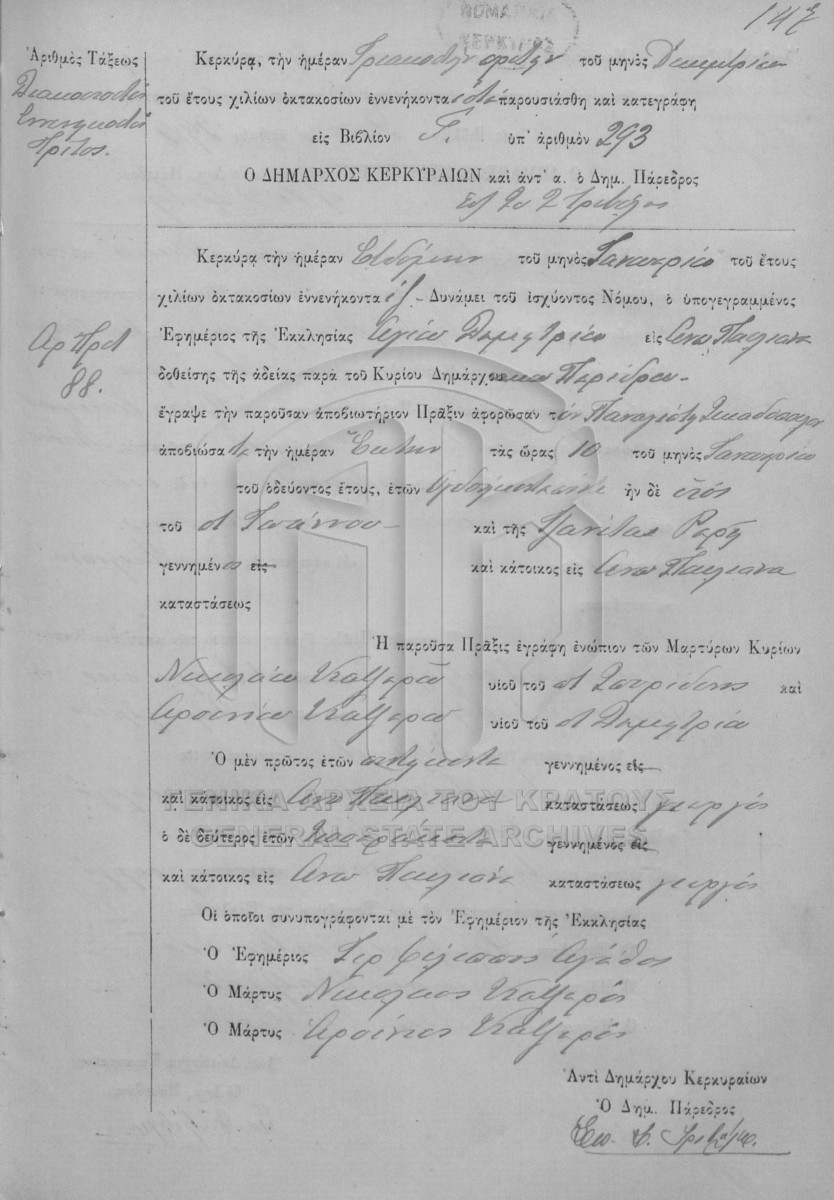 147
Ἀριθμὸς Τάξεως
Διακοσιοστὸς
Ἐννενηκοστὸς
Τρίτος.
Κερκύρᾳ, τὴν ἡμέραν Τριακοστὴν πρώτην τοῦ μηνὸς Δεκεμβρίου
τοῦ ἔτους χιλίων ὀκτακοσίων ἐννενήκοντα ἓξ παρουσιάσθη καὶ κατεγράφη
εἰς Βιβλίον Γ. ὑπ' ἀριθμὸν 293
Ὁ ΔΗΜΑΡΧΟΣ ΚΕΡΚΥΡΑΙΩΝ καὶ ἀντ' α. ὁ Δημ. Πάρεδρος
Κερκύρᾳ τὴν ἡμέραν Ἑβδόμην τοῦ μηνὸς Ἰανουαρίου τοῦ ἔτους
χιλίων ὀκτακοσίων ἐννενήκοντα ἓξ Δυνάμει τοῦ ἰσχύοντος Νόμου, ὁ ὑπογεγραμμένος
Ἀρ Πρωτ
88.
Ἐφημέριος τῆς Ἐκκλησίας Ἁγίου Δημητρίου εἰς Ἄνω Παυλιάνα
δοθείσης τῆς ἀδείας παρὰ τοῦ Κυρίου Δημάρχου Παρέδρου
ἔγραψε τὴν παροῦσαν ἀποβιωτήριον Πρᾶξιν ἀφορῶσαν τὸν Παναγιώτη
ἀποβιώσα τὴν ἡμέραν Ἕκτην τὰς ὥρας 10 τοῦ μηνὸς Ἰανουαρίου
τοῦ ὁδεύοντος ἔτους, ἐτῶν ἦν δὲ υἱὸς
τοῦ Ἰωάννου καὶ τῆς
γεννημένος εἰς καὶ κάτοικος εἰς Ἄνω Παυλιάνα
καταστάσεως
Ἡ παροῦσα Πρᾶξις ἐγράφη ἐνώπιον τῶν Μαρτύρων Κυρίων
Νικολάου Κατζαροῦ υἱοῦ τοῦ Σπυρίδωνος καὶ
Ἀρσενίου Κατζαροῦ υἱοῦ τοῦ Δημητρίου
Ὁ μὲν πρῶτος ἐτῶν πενήκοντα γεννημένος εἰς
καὶ κάτοικος εἰς Ἄνω Παυλιάνα καταστάσεως γεωργός
ὁ δὲ δεύτερος ἐτῶν Τεσσαράκοντα γεννημένος εἰς
καὶ κάτοικος εἰς Ἄνω Παυλιάνα καταστάσεως γεωργός
Οἱ ὁποῖοι συνυπογράφονται μὲ τὸν Ἐφημέριον τῆς Ἐκκλησίας
Ὁ Ἐφημέριος Ἱερ Φίλιππος Ἀγάθος
Ὁ Μάρτυς Νικόλαος Κατζαρός
Ὁ Μάρτυς Ἀρσένιος Κατζαρός
Ἀντὶ Δημάρχου Κερκυραίων
Ὁ Δημ. Πάρεδρος
ΓΕΝΙΚΑ ΑΡΧΕΙΑ ΤΟΥ ΚΡΑΤΟΥΣ
GENERAL STATE ARCHIVES